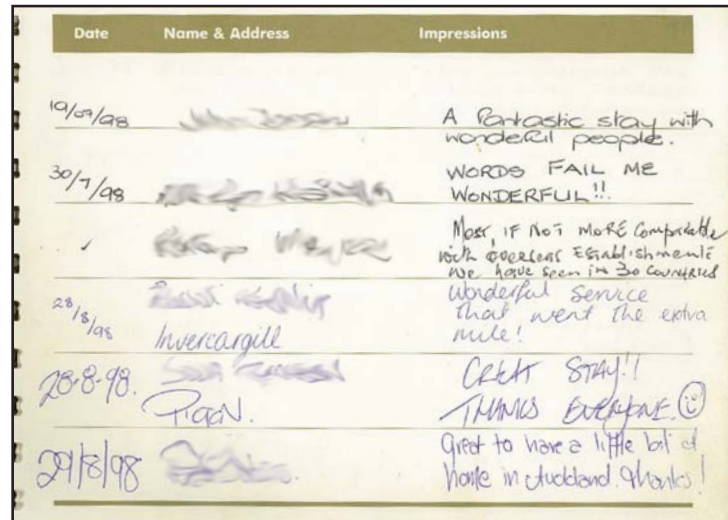 Date Name & Address Impressions
19/07/98 A Fantastic stay with
wonderful people.
30/7/98 WORDS FAIL ME
WONDERFUL!!
Most, IF NOT MORE Comparable
with overseas Establishments
we have seen in 30 COUNTRIES
28/8/98 Wonderful service
that went the extra
Invercargill mile!
28·8·98. GREAT STAY!!
THANKS EVERYONE.
29/8/98 Great to have a little bit of
home in Auckland. Thanks!